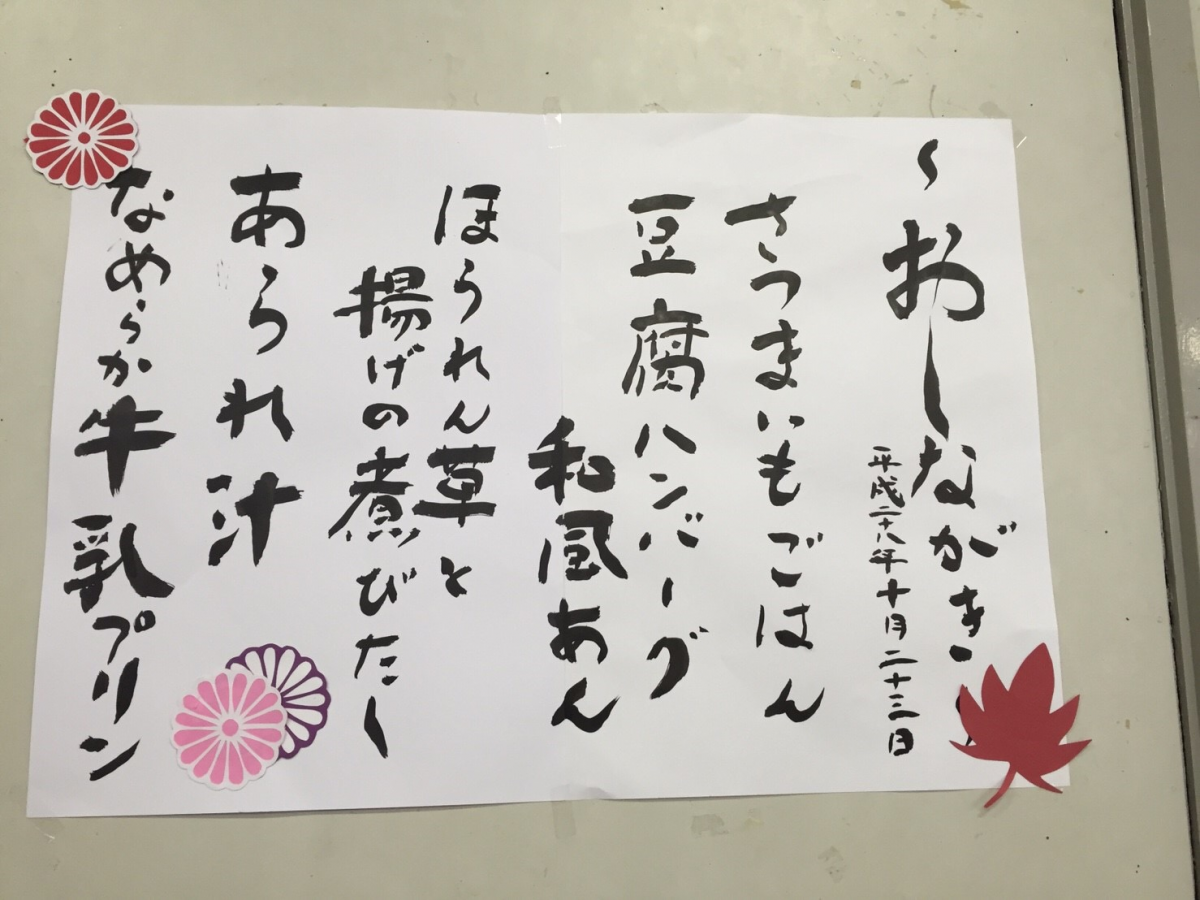 〜おしながき〜
平成二十八年十月二十三日
さつまいもごはん
豆腐ハンバーグ
和風あん
ほうれん草と
揚げの煮びたし
あられ汁
なめらか牛乳プリン